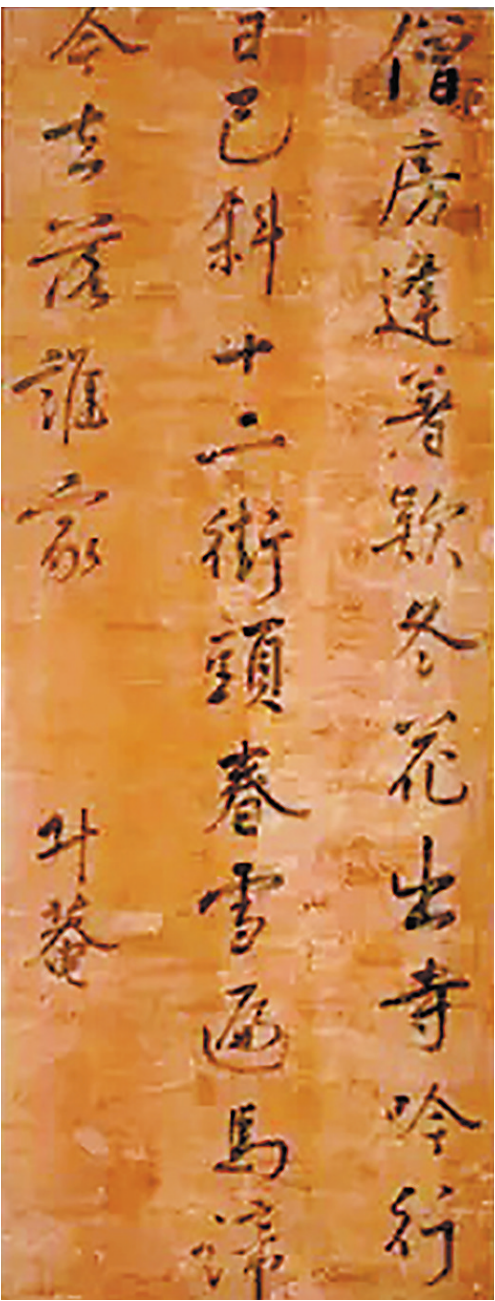 僧房逢著款冬花出寺吟行
日已斜十二街頭春雪遍馬蹄
今去落誰家
菴